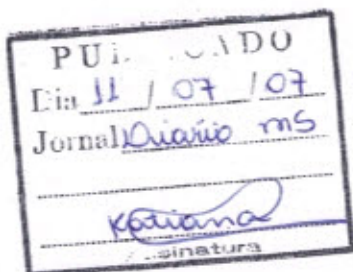 PUBLICADO
Dia 11 / 07 / 07
Jornal Diario MS
Katiana
Assinatura